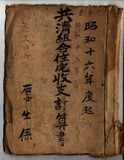 昭和十六年度起
共済組合住宅収支計算書
厚生係